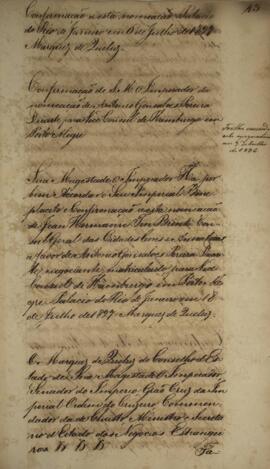 Confirmação a esta nomeação Palacio
do Rio de Janeiro em de Julho de 1827
Marquez de Queluz.
Confirmação de S. M. O Imperador da
nomeação de Antonio Gonsalves Pereira
Duarte para Vice Consul de Hamburgo em
Porto Alegre
Sua Magestade o Imperador Ha por
bem Accordar o Seu Imperial Bene
placito e Confirmação a esta nomeação
de João Hermann Ten Brink Con
sul Geral das Cidades livres e
a favor de Antonio Gonsalves Pereira Duar
te, negociante, matriculado, para Vice
Consul de Hamburgo em Porto Ale
gre. Palacio do Rio de Janeiro em 18
de Julho de 1827. Marquez de Queluz.
O Marquez de Queluz do Conselho d'Es
tado de Sua Magestade O Imperador
Senador do Imperio Grão Cruz da Im
perial Ordem do Cruzeiro Commen
dador da de Christo Ministro e Secreta
rio d'Estado dos Negocios Estrangei
ros